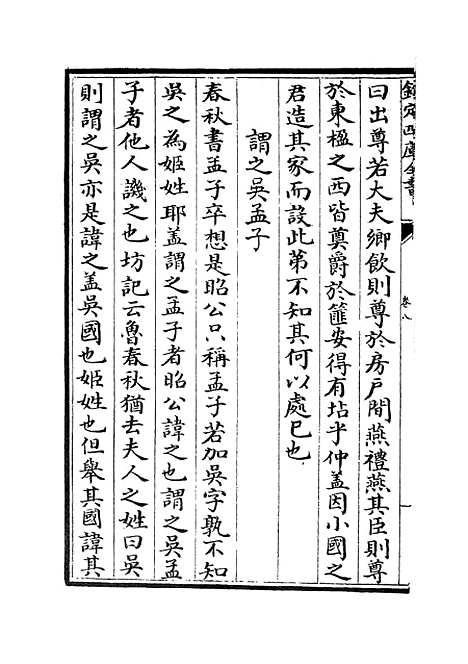 欽定四庫全書
卷八
曰出尊若大夫卿飲則尊於房戶間燕禮燕其臣則尊
於東楹之西皆奠爵於篚安得有坫乎仲蓋因小國之
君造其家而設此第不知其何以處已也
謂之吳孟子
春秋書孟子卒想是昭公只稱孟子若加吳字孰不知
吳之為姬姓耶蓋謂之孟子者昭公諱之也謂之吳孟
子者他人譏之也坊記云魯春秋猶去夫人之姓曰吳
則謂之吳亦是諱之蓋吳國也姬姓也但舉其國諱其